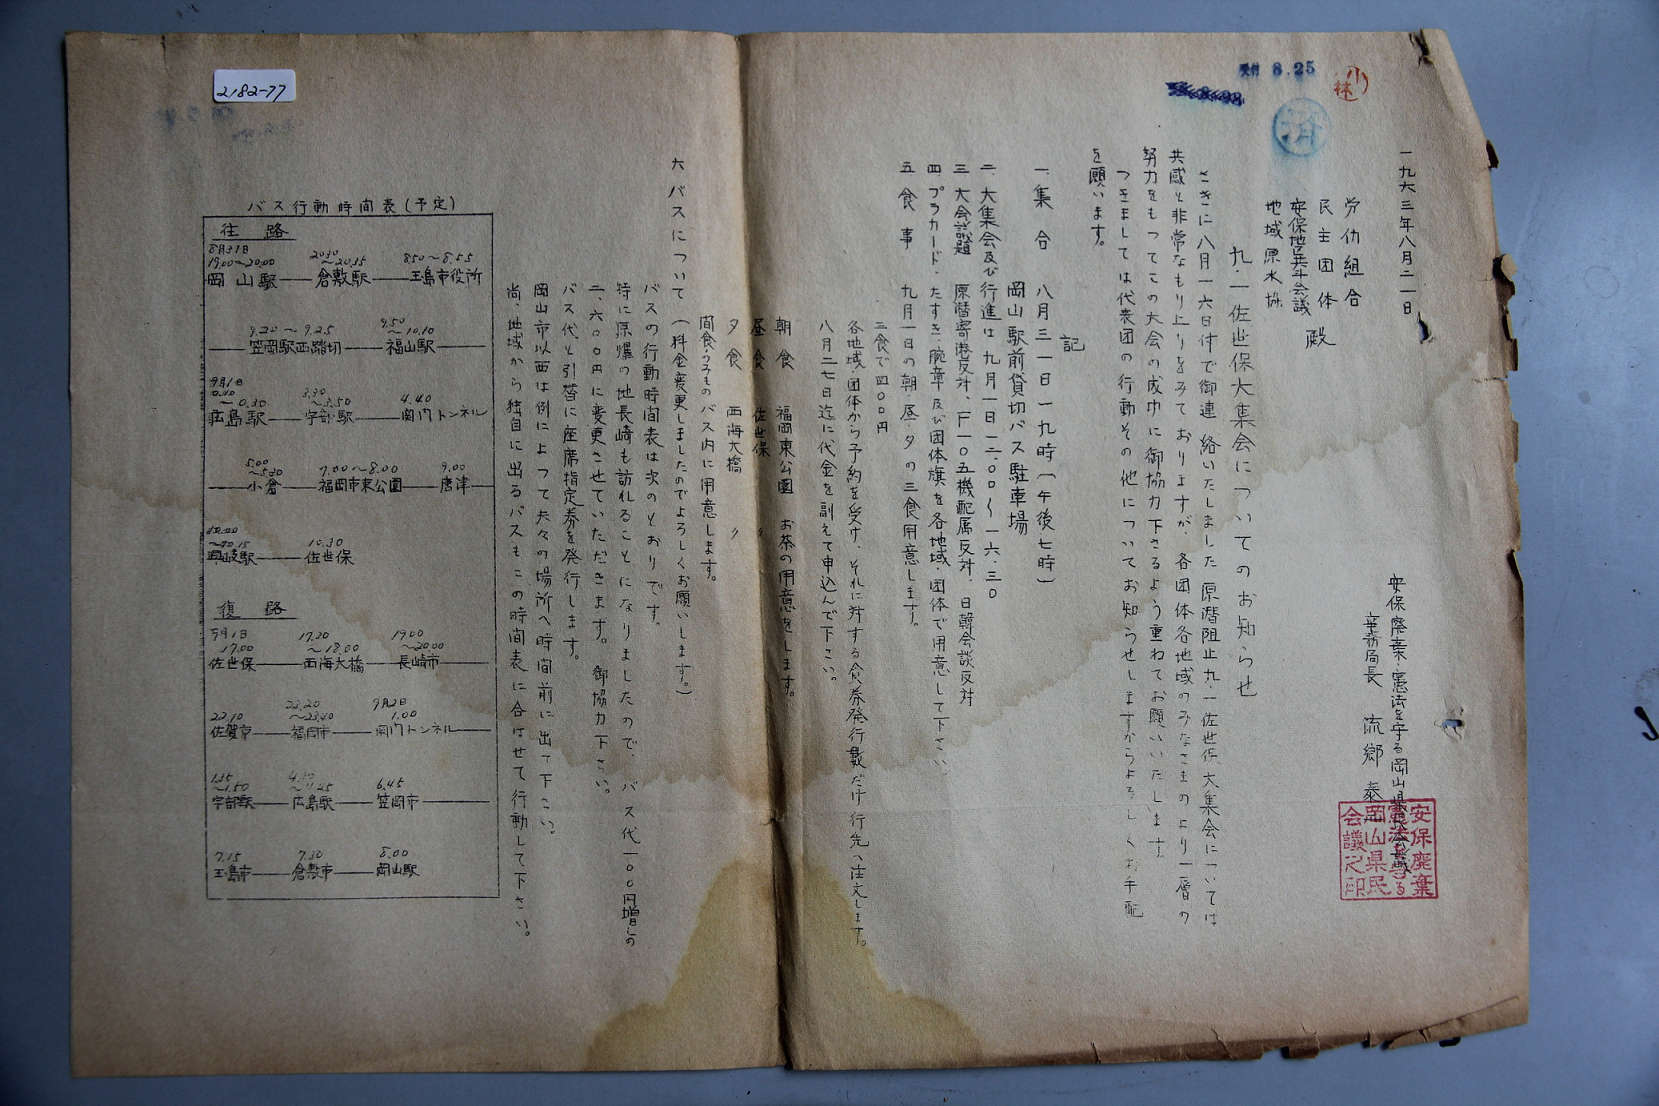 2182-77
受付 8.25
小林
済
一九六三年八月二一日
労仂組合
民主団体 殿
安保地区共斗会議
地域原水協
安保廃棄・憲法を守る岡山県民会議
事務局長 流郷泰
安保廃棄
憲法を守る
岡山県民
会議之印
九・一佐世保大集会についてのお知らせ
さきに八月一六日付で御連絡いたしました原潜阻止九・一佐世保大集会については
共感と非常なもり上りをみておりますが、各団体各地域のみなさまのより一層の
努力をもってこの大会の成功に御協力下さるよう重ねてお願いいたします。
つきましては代表団の行動その他についてお知らせしますからよろしくお手配
を願います。
記
一、集合 八月三一日一九時(午後七時)
岡山駅前貸切バス駐車場
二、大集会及び行進は 九月一日一二・〇〇〜一六・三〇
三、大会議題 原潜寄港反対、F一〇五機配属反対、日韓会談反対
四、プラカード・たすき・腕章及び団体旗を各地域、団体で用意して下さい
五、食事 九月一日の朝・昼・夕の三食用意します。
三食で四〇〇円
各地域・団体から予約を受け、それに対する食券発行数だけ行先へ注文します。
八月二七日迄に代金を副えて申込んで下さい。
朝食 福岡東公園 お茶の用意をします。
昼食 佐世保 〃
夕食 西海大橋 〃
間食うるもの バス内に用意します。
六、バスについて(料金変更しましたのでよろしくお願いします。)
バスの行動時間表は次のとおりです。
特に原爆の地長崎も訪れることになりましたので、バス代一〇〇円増しの
二、六〇〇円に変更させていただきます。御協力下さい。
バス代と引替に座席指定券を発行します。
岡山市以西は例によって夫々の場所へ時間前に出て下さい。
尚、地域から独自に出るバスもこの時間表に合はせて行動して下さい。
バス行動時間表(予定)
往路
8月31日
19.00〜20.00 20.30〜20.35 8.50〜8.55
岡山駅——倉敷駅——玉島市役所
9.20〜9.25 9.50〜10.10
——笠岡駅西踏切——福山駅——
9月1日
〜0.30 3.30〜3.50 4.40
広島駅——宇部駅——関門トンネル
5.00〜5.30 7.00〜8.00 9.00
——小倉——福岡市東公園——唐津—
10.00〜10.15 10.30
早岐駅——佐世保
復路
9月1日
17.00 17.20〜18.00 19.00〜20.00
佐世保——西海大橋——長崎市——
22.10 23.20〜23.40 9月2日 1.00
佐賀市——福岡市——関門トンネル——
1.35〜1.50 6.45
宇部駅——広島駅——笠岡市——
7.15 7.30 8.00
玉島市——倉敷市——岡山駅